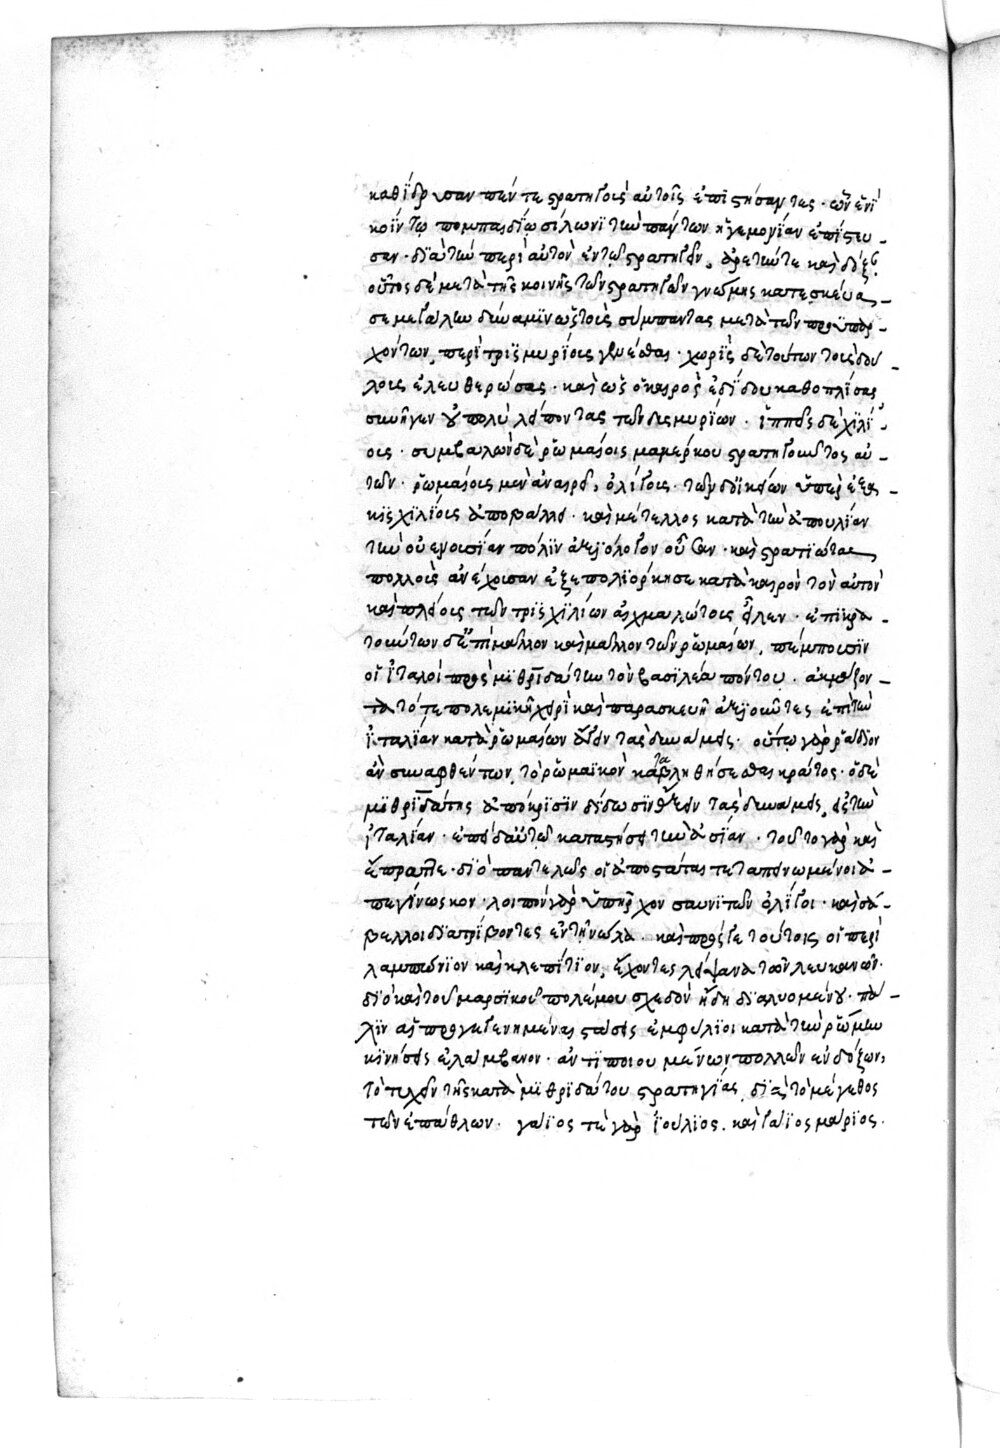 καθίδρυσαν πέντε στρατηγοὺς αὐτοῖς ἐπιστήσαντες · ὧν ἑνὶ
κοΐντῳ πομπαιδίῳ σίλωνι τὴν πάντων ἡγεμονίαν ἐπίστευ -
σαν · διὰ τὴν περὶ αὐτὸν ἐν τῷ στρατηγεῖν, ἀρετήν τε καὶ δόξαν ·
οὗτος δὲ μετὰ τῆς κοινῆς τῶν στρατηγῶν γνώμης κατεσκεύα -
σε μεγάλην δύναμιν ὡς τοὺς σύμπαντας μετὰ τῶν προϋπαρ
χόντων, περὶ τρισμυρίους γενέσθαι · χωρὶς δὲ τούτων τοὺς δού
λους ἐλευθερώσας · καὶ ὡς ὁ καιρὸς ἐδίδου καθοπλίσας
συνῆγεν οὐ πολὺ λείποντας τῶν δισμυρίων · ἱππεῖς δὲ χιλί
ους · συμβαλὼν δὲ ῥωμαίοις μαμέρκου στρατηγοῦντος αὐ -
τῶν · ῥωμαίους μὲν ἀναιρεῖ, ὀλίγους · τῶν δὲ οἰκείων ὑπὲρ ἑξα -
κισχιλίους ἀποβάλλει · καὶ μέτελλος κατὰ τὴν ἀπουλίαν
τὴν οὐενουσίαν πόλιν ἀξιόλογον οὖσαν · καὶ στρατιώτας
πολλοὺς ἀνέχουσαν ἐξεπολιόρκησε κατὰ καιρὸν τὸν αὐτὸν
καὶ πλείους τῶν τρισχιλίων αἰχμαλώτους εἷλεν · ἐπικρα -
τούντων δὲ ἔτι μᾶλλον καὶ μᾶλλον τῶν ῥωμαίων, πέμπουσιν
οἱ ἰταλοὶ πρὸς μιθριδάτην τὸν βασιλέα πόντου · ἀκμάζον -
τα τότε πολεμικῇ χειρὶ καὶ παρασκευῇ ἀξιοῦντες ἐπὶ τὴν
ἰταλίαν κατὰ ῥωμαίων ἄγειν τὰς δυνάμεις · οὕτω γὰρ ῥᾴδιον
ἂν συναφθέντων, τὸ ῥωμαϊκὸν καταβληθήσεσθαι κράτος · ὁ δὲ
μιθριδάτης ἀπόκρισιν δίδωσιν ἄξειν τὰς δυνάμεις, εἰς τὴν
ἰταλίαν · ἐπειδὰν αὐτῷ καταστήσῃ τὴν ἀσίαν · τοῦτο γὰρ καὶ
ἔπραττε · διὸ παντελῶς οἱ ἀποστάται τεταπεινωμένοι ἀ -
πεγίνωσκον · λοιποὶ γὰρ ὑπῆρχον σαυνιτῶν ὀλίγοι · καὶ σα -
βελλοι διατρίβοντες ἐν τῇ νώλᾳ · καὶ πρός γε τούτοις οἱ περὶ
λαμπώνιον καὶ κλεπίτιον, ἔχοντες λείψανα τῶν λευκανῶν ·
διὸ καὶ τοῦ μαρσικοῦ πολέμου σχεδὸν ἤδη διαλυομένου · πά -
λιν αἱ προγεγενημέναι στάσεις ἐμφύλιοι κατὰ τὴν ῥώμην
κινήσεις ἐλάμβανον · ἀντιποιουμένων πολλῶν ἐνδόξων,
τὸ τυχεῖν τῆς κατὰ μιθριδάτου στρατηγίας, διὰ τὸ μέγεθος
τῶν ἐπάθλων · γάϊός τε γὰρ ἰούλιος · καὶ γάϊος μάριος ·